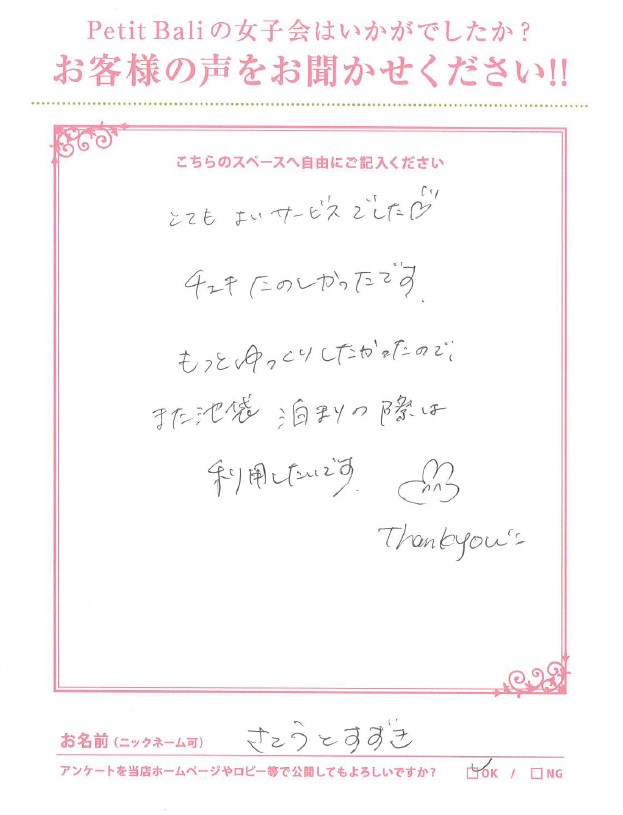 Petit Baliの女子会はいかがでしたか?
お客様の声をお聞かせください!!
こちらのスペースへ自由にご記入ください
とても よいサービスでした♡
チェキ たのしかったです.
もっとゆっくりしたかったので、
また池袋 泊まりの際は
利用したいです.
Thankyou
お名前(ニックネーム可) さとうとすずき
アンケートを当店ホームページやロビー等で公開してもよろしいですか? ☑OK / □NG